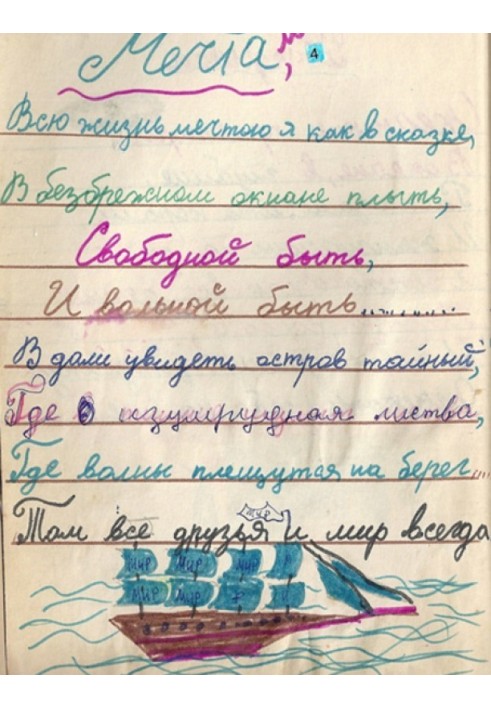 Мечта
4
Всю жизнь мечтою я как в сказке,
В безбрежном окиане плыть,
Свободной быть,
И вольной быть..........
В дали увидеть остров тайный,
Где изумрудная листва,
Где волны плещутся, на берег...
Там все друзья и мир всегда
мир
мир мир мир
мир мир